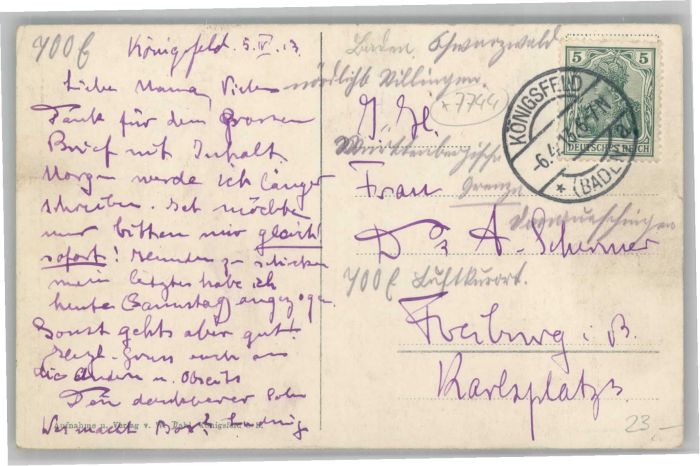 700 E
Königsfeld 5. IV. 13.
Liebe Mama! Vielen
Dank für den Grossen
Brief mit Inhalt.
Morgen werde ich länger
schreiben. Ich möchte
nur bitten mir gleich
sofort! Hemden zu schicken
mein letztes habe ich
heute Samstag angezogen.
Sonst gehts aber gut!
Herzl. Gruss auch an
die Andern u. Oberits
Dein dankbarer Sohn
Ludwig
Aufnahme u. Verlag v. Königsfeld i. B.
Baden Schwarzwald
nördlich Villingen.
*7744
Württembergische
Grenze
Donaueschingen
Frau
Dr A. Schirmer
700 E Luftkurort.
Freiburg i. B.
Karlsplatz
23.-
5 5
DEUTSCHES REICH
KÖNIGSFELD
(BADEN)